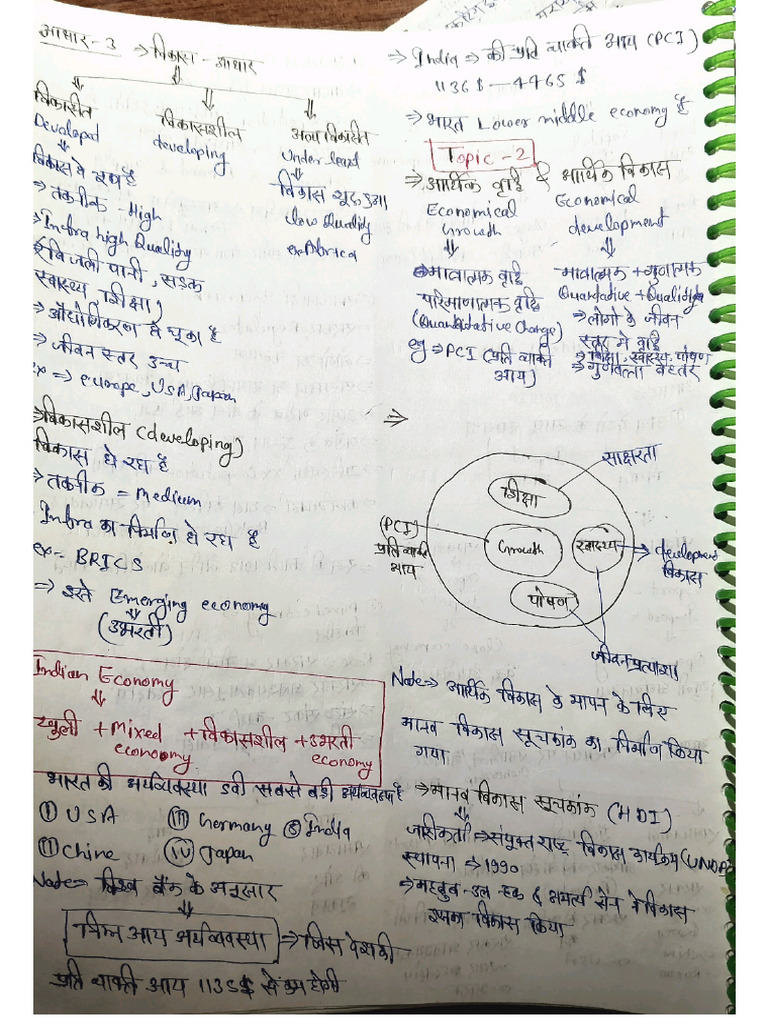 आधार-3 ⇒ विकास-आधार
विकासीत
Devalopat
विकासशील
developing
अल्प विकसित
under lead
विकास हो चुका है
⇒ तकनीक-High
⇒ Infra high Quality
(बिजली पानी, सड़क
स्वास्थ्य, शिक्षा)
⇒ औद्योगिकरण हो चूका है
⇒ जीवन स्तर उच्च
ex ⇒ europe, USA, Japan
विकास शुरू हुआ
low Quality
ex Africa
⇒ विकासशील (developing)
विकास हो रहा है
⇒ तकनीक = medium
Infra का निर्माण हो रहा है
ex- BRICS
⇒ इसे Emerging economy
(उभरती)
Indian Economy
खुली + Mixed economy + विकासशील + उभरती economy
भारत की अर्थव्यवस्था 5वी सबसे बड़ी अर्थव्यवस्था है
① USA ⅲ Germany ⑤ India
ⅱ Chine ⅳ Japan
Node ⇒ विश्व बैंक के अनुसार
निम्न आय अर्थव्यवस्था ⇒ जिस देश की
प्रति व्यक्ति आय 1135$ से कम होगी
⇒ India ⇒ की प्रति व्यक्ति आय (PCI)
1136 $ — 4465 $
⇒ भारत Lower middle economy है
Topic-2
⇒ आर्थिक वृद्धि & आर्थिक विकास
Economical Growth
Economical development
मात्रात्मक वृद्धि
परिमाणात्मक वृद्धि
(Quantadative Change)
eg ⇒ PCI (प्रति व्यक्ति
आय)
मात्रात्मक + गुणात्मक
Quantative + Quality
⇒ लोगो के जीवन
स्तर मे वृद्धि
⇒ शिक्षा, स्वास्थ्य, पोषण
⇒ गुणवत्ता बेहतर
⇒
साक्षरता
शिक्षा
(PCI)
प्रति व्यक्ति
आय
Growth
स्वास्थ्य
development
विकास
पोषन
जीवन प्रत्याशा
Node ⇒ आर्थिक विकास के मापन के लिए
मानव विकास सूचकांक का निर्माण किया
गया
⇒ मानव विकास सूचकांक (HDI)
जारीकर्ता ⇒ संयुक्त राष्ट्र विकास कार्यक्रम (UNDP)
स्थापना ⇒ 1990
⇒ महबुब-उल-हक & अमर्त्य सेन ने विकास
इसका विकास किया